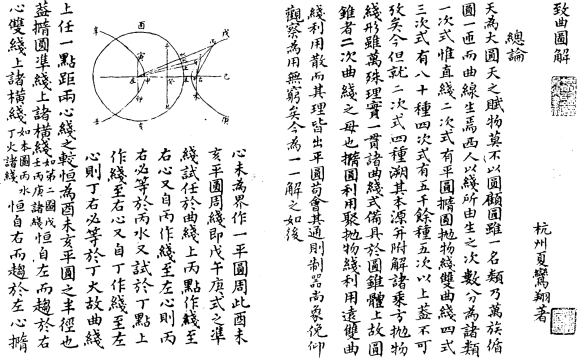 致曲圖解
杭州夏鸞翔著
總論
天為大圓天之賦物莫不以圓顧圓雖一名類乃萬族循
圓一匝而曲線生焉西人以綫所由生之次數分為諸類
一次式惟直綫二次式有平圓撱圓拋物綫雙曲綫四式
三次式有八十種四次式有五千餘種五次以上蓋不可
攷矣今但就二次式四種溯其本源并附解諸乘方拋物
綫形雖萬殊理實一貫諸曲綫式備具於圓錐體上故圓
錐者二次曲綫之母也撱圓利用聚拋物綫利用遠雙曲
綫利用散而其理皆出平圓苟會其通則制器尚象俛仰
觀察為用無窮矣今為一一解之如後
酉
辛
戊
丙
己
庚
壬
亥
心未為界作一平圓周此酉未
亥平圓周綫即戊午庚式之準
綫試任於曲綫上丙點作綫至
右心又自丙作綫至左心則丙
右必等於丙水又試於丁點上
作綫至右心又自丁作綫至左
心則丁右必等於丁火故曲綫
上任一點距兩心綫之較恒為酉未亥平圓之半徑也
蓋撱圓準綫上諸橫綫如第二圖戊壬丙庚諸綫恒自左而趨於右
心雙綫上諸橫綫如本圖丙水丁火諸綫恒自右而趨於左心撱